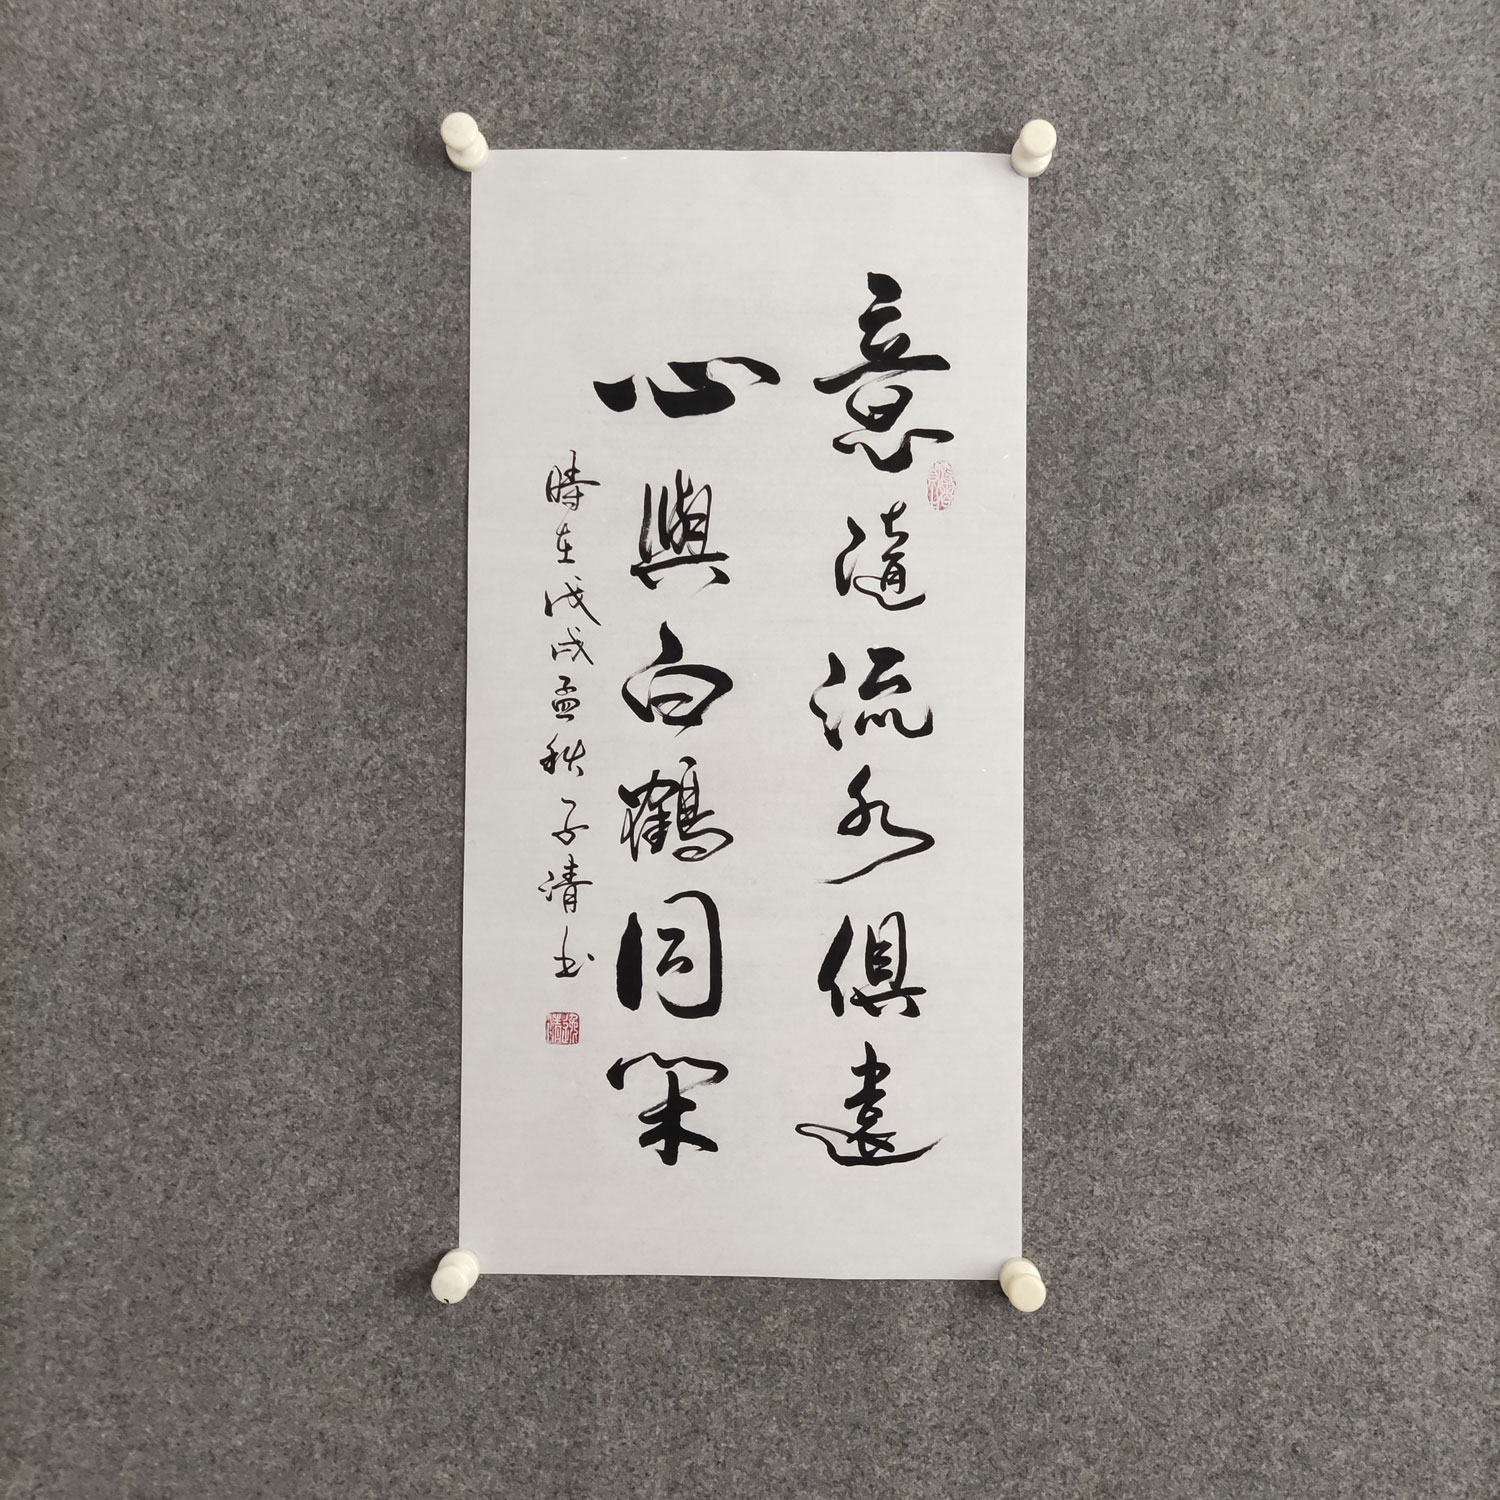 意隨流水俱遠
心與白鶴同閑
時在戊戌孟秋子清书